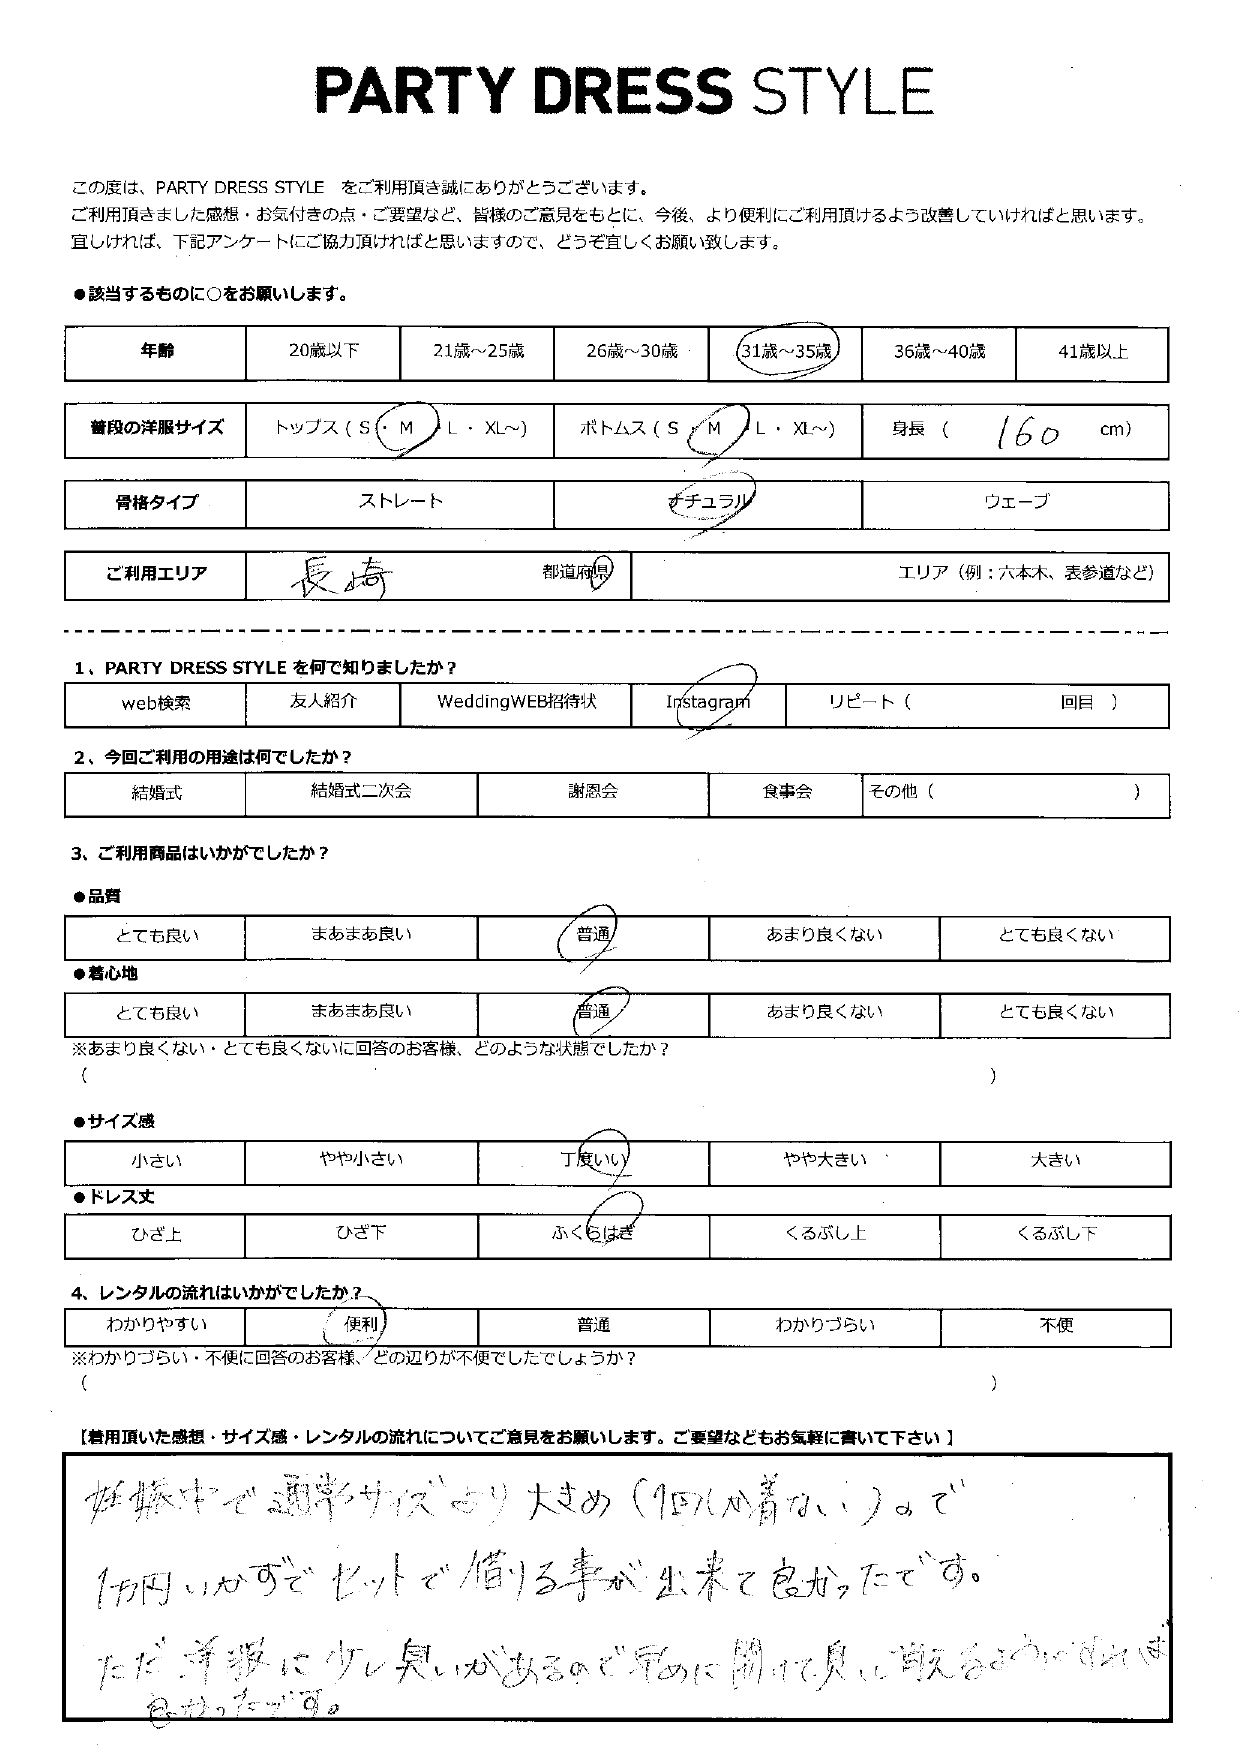 PARTY DRESS STYLE
この度は、PARTY DRESS STYLE をご利用頂き誠にありがとうございます。
ご利用頂きました感想・お気付きの点・ご要望など、皆様のご意見をもとに、今後、より便利にご利用頂けるよう改善していければと思います。
宜しければ、下記アンケートにご協力頂ければと思いますので、どうぞ宜しくお願い致します。
●該当するものに○をお願いします。
年齢 20歳以下 21歳～25歳 26歳～30歳 31歳～35歳 36歳～40歳 41歳以上
普段の洋服サイズ トップス ( S ・ M ・ L ・ XL～) ボトムス ( S ・ M ・ L ・ XL～) 身長 ( 160 cm)
骨格タイプ ストレート ナチュラル ウェーブ
ご利用エリア 長崎 都道府県 エリア（例：六本木、表参道など）
1、PARTY DRESS STYLE を何で知りましたか？
web検索 友人紹介 WeddingWEB招待状 Instagram リピート ( 回目 )
2、今回ご利用の用途は何でしたか？
結婚式 結婚式二次会 謝恩会 食事会 その他 ( )
3、ご利用商品はいかがでしたか？
●品質
とても良い まあまあ良い 普通 あまり良くない とても良くない
●着心地
とても良い まあまあ良い 普通 あまり良くない とても良くない
※あまり良くない・とても良くないに回答のお客様、どのような状態でしたか？
( )
●サイズ感
小さい やや小さい 丁度いい やや大きい 大きい
●ドレス丈
ひざ上 ひざ下 ふくらはぎ くるぶし上 くるぶし下
4、レンタルの流れはいかがでしたか？
わかりやすい 便利 普通 わかりづらい 不便
※わかりづらい・不便に回答のお客様、どの辺りが不便でしたでしょうか？
( )
【着用頂いた感想・サイズ感・レンタルの流れについてご意見をお願いします。ご要望などもお気軽に書いて下さい 】
妊娠中で通常サイズより大きめ（1回しか着ない）ので
1万円いかずでセットで借りる事が出来て良かったです。
ただ洋服に少し臭いがあるので早めに開けて臭い消えるようにすれば
良かったです。